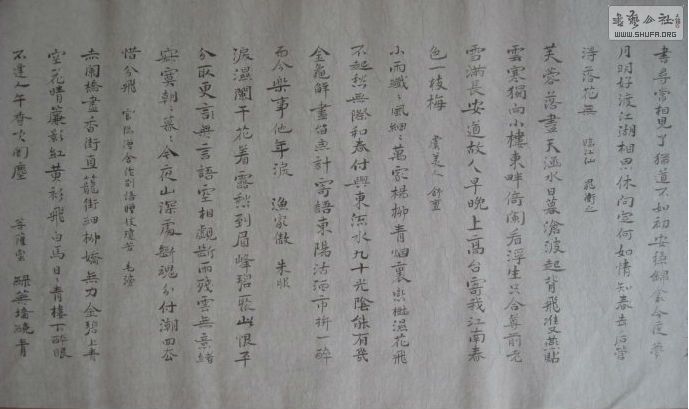 書尋常相見了猶道不如初安穩錦衾今夜夢
月明好渡江湖相思休問定何如情知春去後管
得落花無 臨江仙 晁衝之
芙蓉落盡天涵水日暮滄波起背飛雙燕貼
雲寒獨向小樓東畔倚闌看浮生只合尊前老
雪滿長安道故人早晚上高台寄我江南春
色一枝梅 虞美人 舒亶
小雨纖纖風細細萬家楊柳青煙裏戀樹濕花飛
不起愁無際和春付與東流水九十光陰能有幾
金龜解盡留無計寄語東陽沽酒市拚一醉
而今樂事他年淚 漁家傲 朱服
淚濕闌干花著露愁到眉峰碧聚此恨平
分取更言無言語空相覷斷雨殘雲無意緒
寂寞朝朝暮暮今夜山深處斷魂分付潮回去
惜分飛 毛滂
赤闌橋盡香街直籠街細柳嬌無力金碧上青
空花晴簾影紅黃衫飛白馬日日青樓下醉眼
不逢人午香吹闇塵 菩薩蠻 綠蕪牆繞青
書藝公社
WWW.SHUFA.ORG